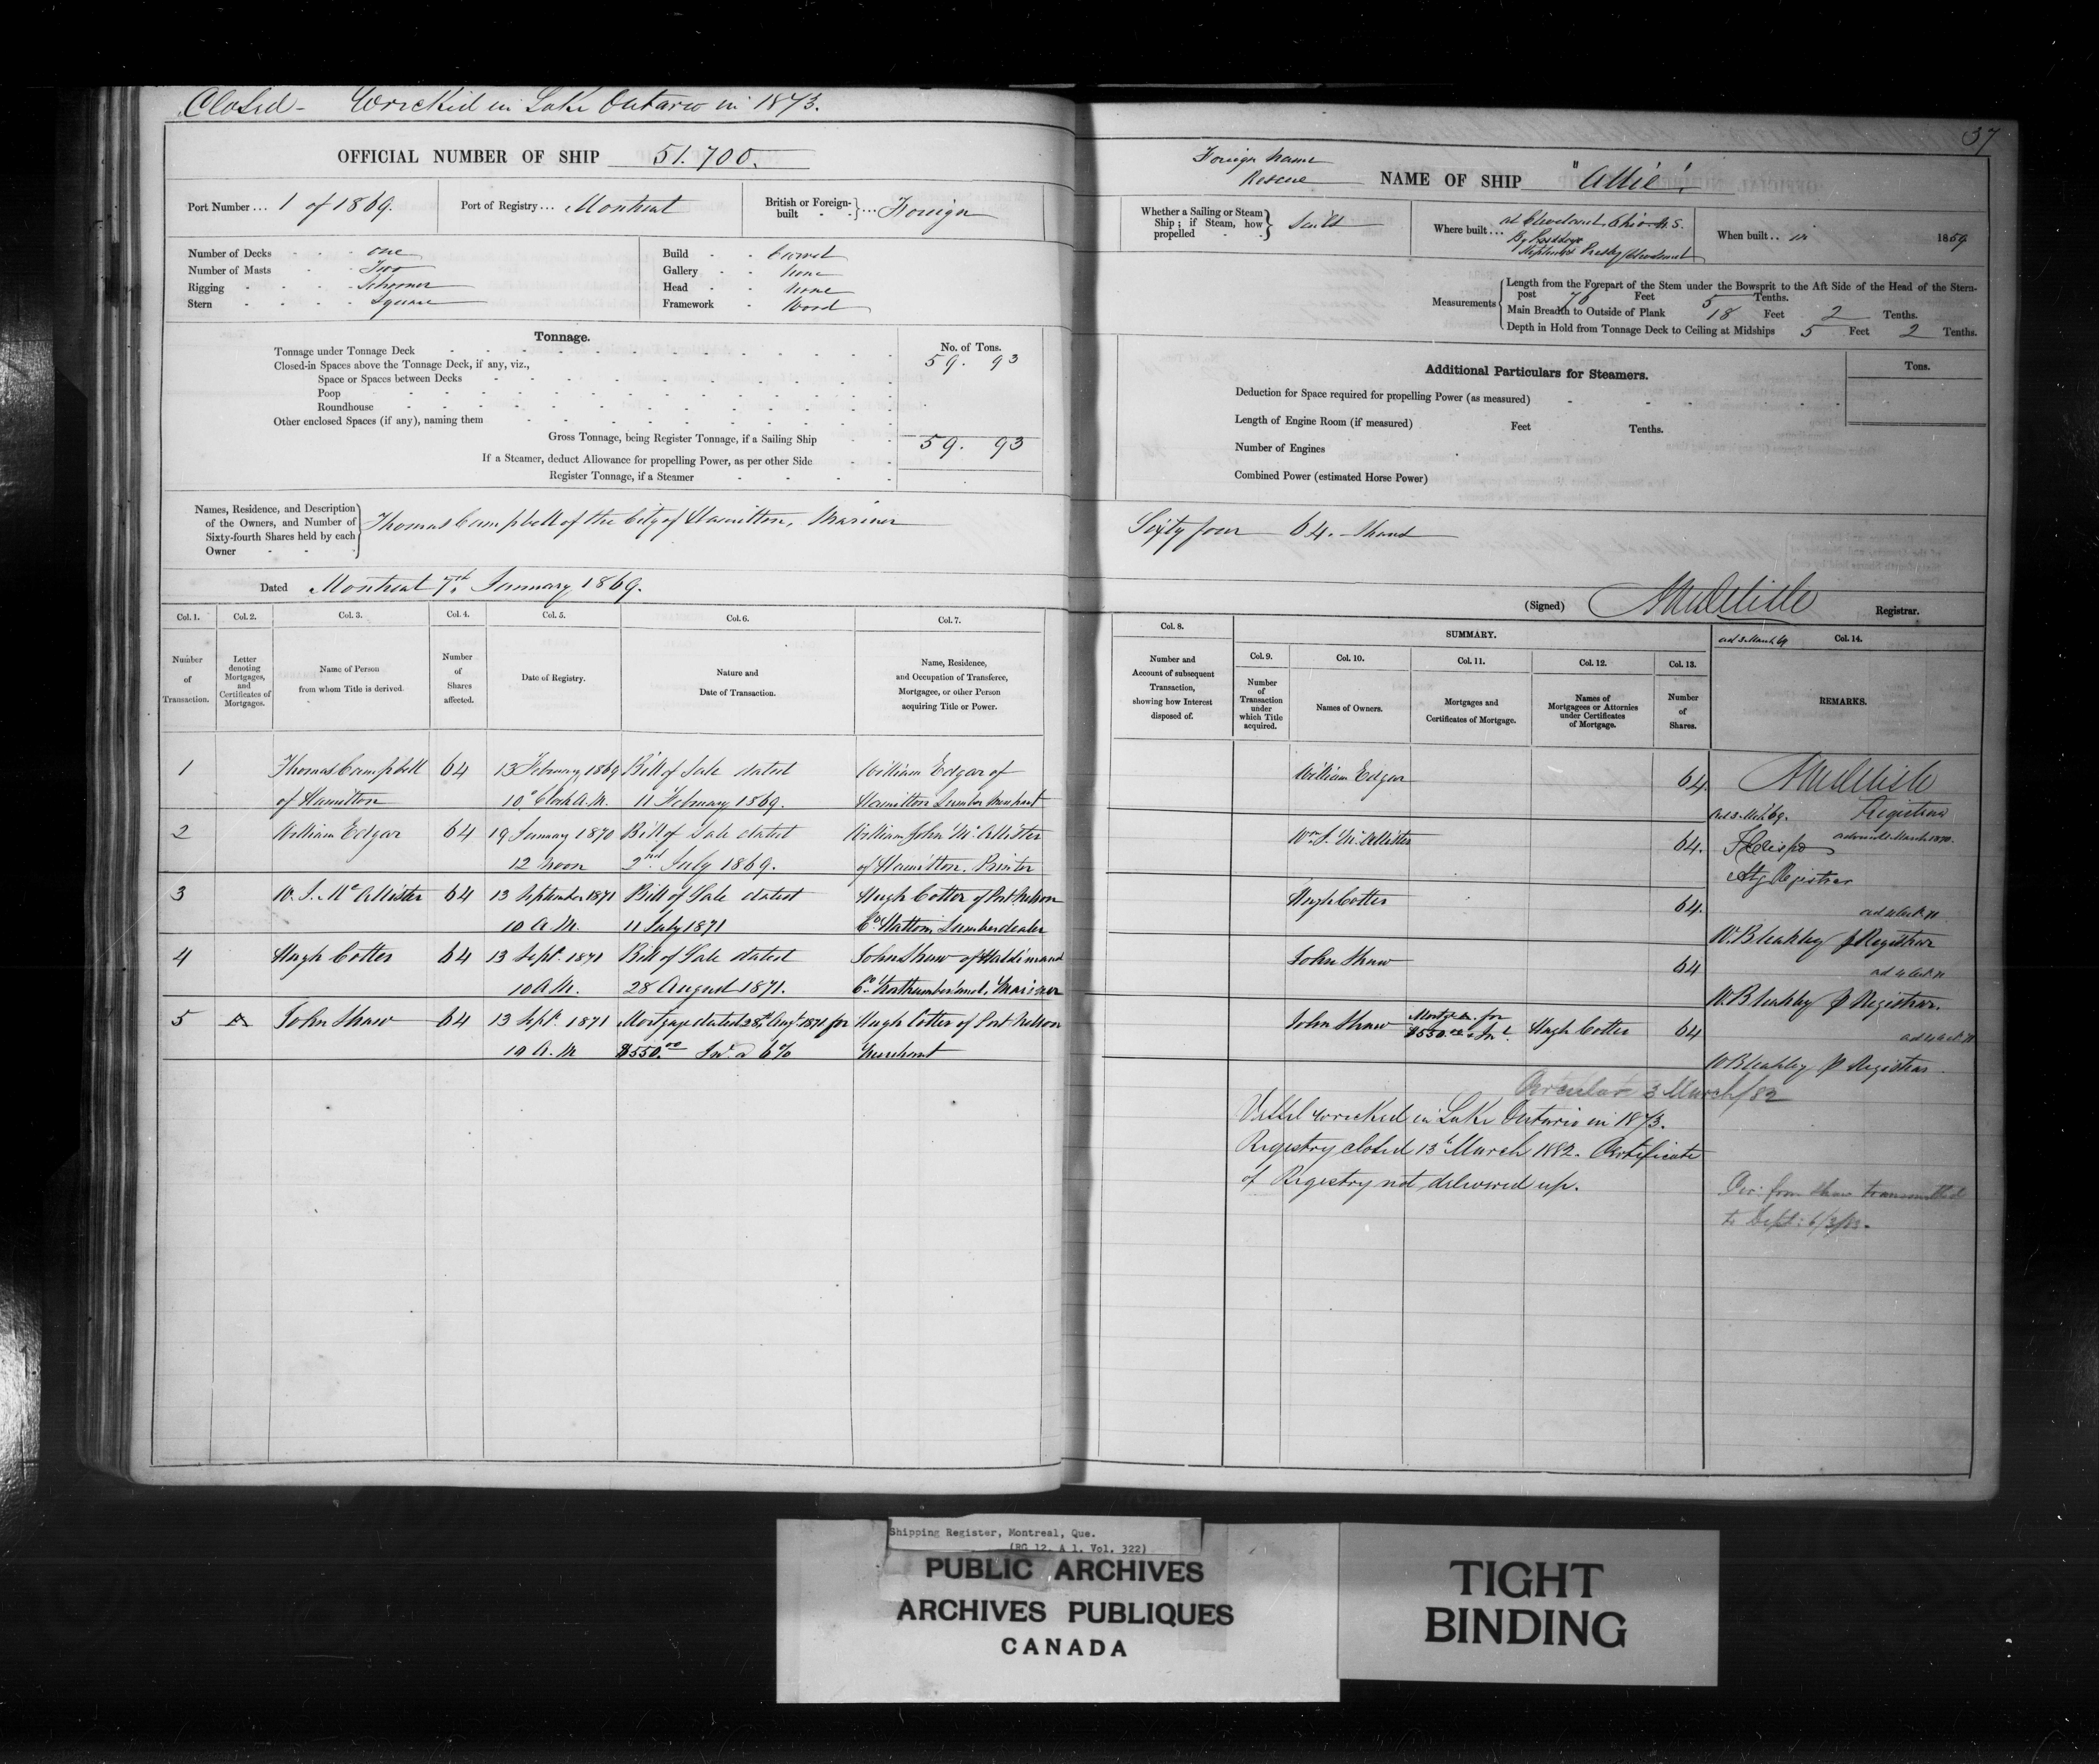 Closed - Wrecked in Lake Ontario in 1873.
OFFICIAL NUMBER OF SHIP 51.700.
Port Number ... 1 of 1869. Port of Registry ... Montreal British or Foreign-built } ... Foreign
Number of Decks - - - one
Number of Masts - - Two
Rigging - - - - Schooner
Stern - - - - Square
Build - - Carvel
Gallery - - None
Head - - None
Framework - Wood
Tonnage. No. of Tons.
Tonnage under Tonnage Deck 59. 93
Closed-in Spaces above the Tonnage Deck, if any, viz.,
Space or Spaces between Decks
Poop
Roundhouse
Other enclosed Spaces (if any), naming them
Gross Tonnage, being Register Tonnage, if a Sailing Ship 59. 93
If a Steamer, deduct Allowance for propelling Power, as per other Side
Register Tonnage, if a Steamer
Names, Residence, and Description
of the Owners, and Number of
Sixty-fourth Shares held by each
Owner
Thomas Campbell of the City of Hamilton, Mariner
Dated Montreal 7th January 1869.
Col. 1. Col. 2. Col. 3. Col. 4. Col. 5. Col. 6. Col. 7.
Number of Transaction.
Letter denoting Mortgages, and Certificates of Mortgages.
Name of Person from whom Title is derived.
Number of Shares affected.
Date of Registry.
Nature and Date of Transaction.
Name, Residence, and Occupation of Transferee, Mortgagee, or other Person acquiring Title or Power.
1 Thomas Campbell 64 13 February 1869 Bill of Sale dated William Edgar of
of Hamilton 10 o'Clock A.M. 11 February 1869. Hamilton Lumber Merchant
2 William Edgar 64 19 January 1870 Bill of Sale dated William John McAllister
12 Noon 2nd July 1869. of Hamilton. Printer
3 W. J. McAllister 64 13 September 1871 Bill of Sale dated Hugh Cotter of Port Nelson
10 A.M. 11 July 1871 Co. Halton, Lumberdealer
4 Hugh Cotter 64 13 Sept. 1871 Bill of Sale dated John Shaw of Haldimand
10 A.M. 28 August 1871. Co. Northumberland, Mariner
5 A John Shaw 64 13 Sept. 1871 Mortgage dated 28th Augt. 1871 for Hugh Cotter of Port Nelson
10 A.M $550.00 Int. @ 6% Merchant
37
Foreign Name
Rescue
NAME OF SHIP "Allie".
Whether a Sailing or Steam Ship; if Steam, how propelled } Sails
Where built ... at Cleveland, Ohio U.S.
When built .. in 1859
Measurements
Length from the Forepart of the Stem under the Bowsprit to the Aft Side of the Head of the Stern-
post 76 Feet 5 Tenths.
Main Breadth to Outside of Plank 18 Feet 2 Tenths.
Depth in Hold from Tonnage Deck to Ceiling at Midships 5 Feet 2 Tenths.
Additional Particulars for Steamers. Tons.
Deduction for Space required for propelling Power (as measured)
Length of Engine Room (if measured) Feet Tenths.
Number of Engines
Combined Power (estimated Horse Power)
Sixty four 64. Shares
(Signed) Registrar.
Col. 8. SUMMARY. Col. 14.
Col. 9. Col. 10. Col. 11. Col. 12. Col. 13.
Number and Account of subsequent Transaction, showing how Interest disposed of.
Number of Transaction under which Title acquired.
Names of Owners.
Mortgages and Certificates of Mortgage.
Names of Mortgagees or Attornies under Certificates of Mortgage.
Number of Shares.
REMARKS.
William Edgar 64
Registrar
Wm. J. McAllister 64.
Actg Registrar
Hugh Cotter 64.
W. Bleakley p Registrar
John Shaw 64
W. Bleakley p Registrar.
John Shaw Mortge A. for
$550.00 & Int. Hugh Cotter 64
W Bleakley p Registrar
Circular 3 March/82
Vessel wrecked in Lake Ontario in 1873.
Registry closed 13th March 1882. Certificate
of Registry not delivered up.
from Shaw transmitted
to Dept:
Shipping Register, Montreal, Que.
(RG 12, A 1, Vol. 322)
PUBLIC ARCHIVES
ARCHIVES PUBLIQUES
CANADA
TIGHT
BINDING